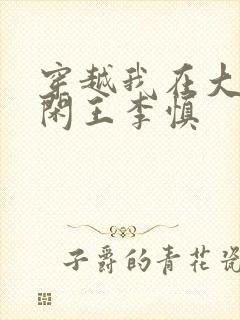 穿越我在大
闲王李慎
子爵的青花瓷